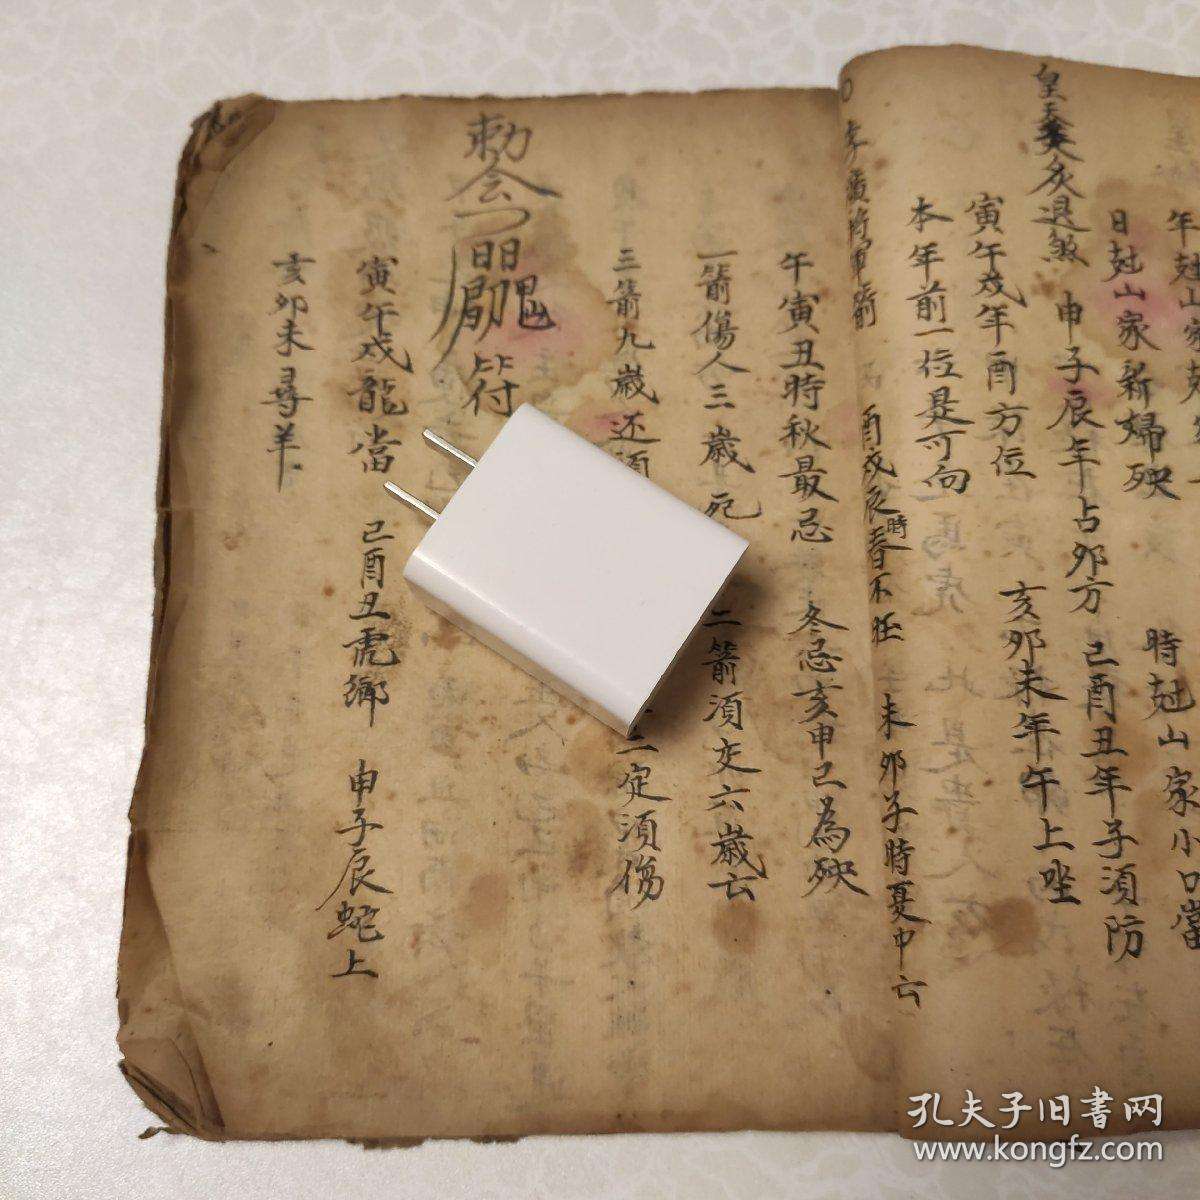 年尅山家
日尅山家新婦殃
時尅山家小口當
皇天炙退煞 申子辰年占卯方 己酉丑年子須防
寅午戌年酉方位 亥卯未年午上坐
本年前一位是可向
李廣將軍箭 酉戌辰時春不 未卯子時夏中亡
午寅丑時秋最忌 冬忌亥申己為殃
一箭傷人三歲死 二箭須交六歲亡
三箭九歲还須 定須傷
勅令
符
寅午戌龍當 己酉丑虎鄉 申子辰蛇上
亥卯未尋羊
孔夫子旧书网
www.kongfz.com